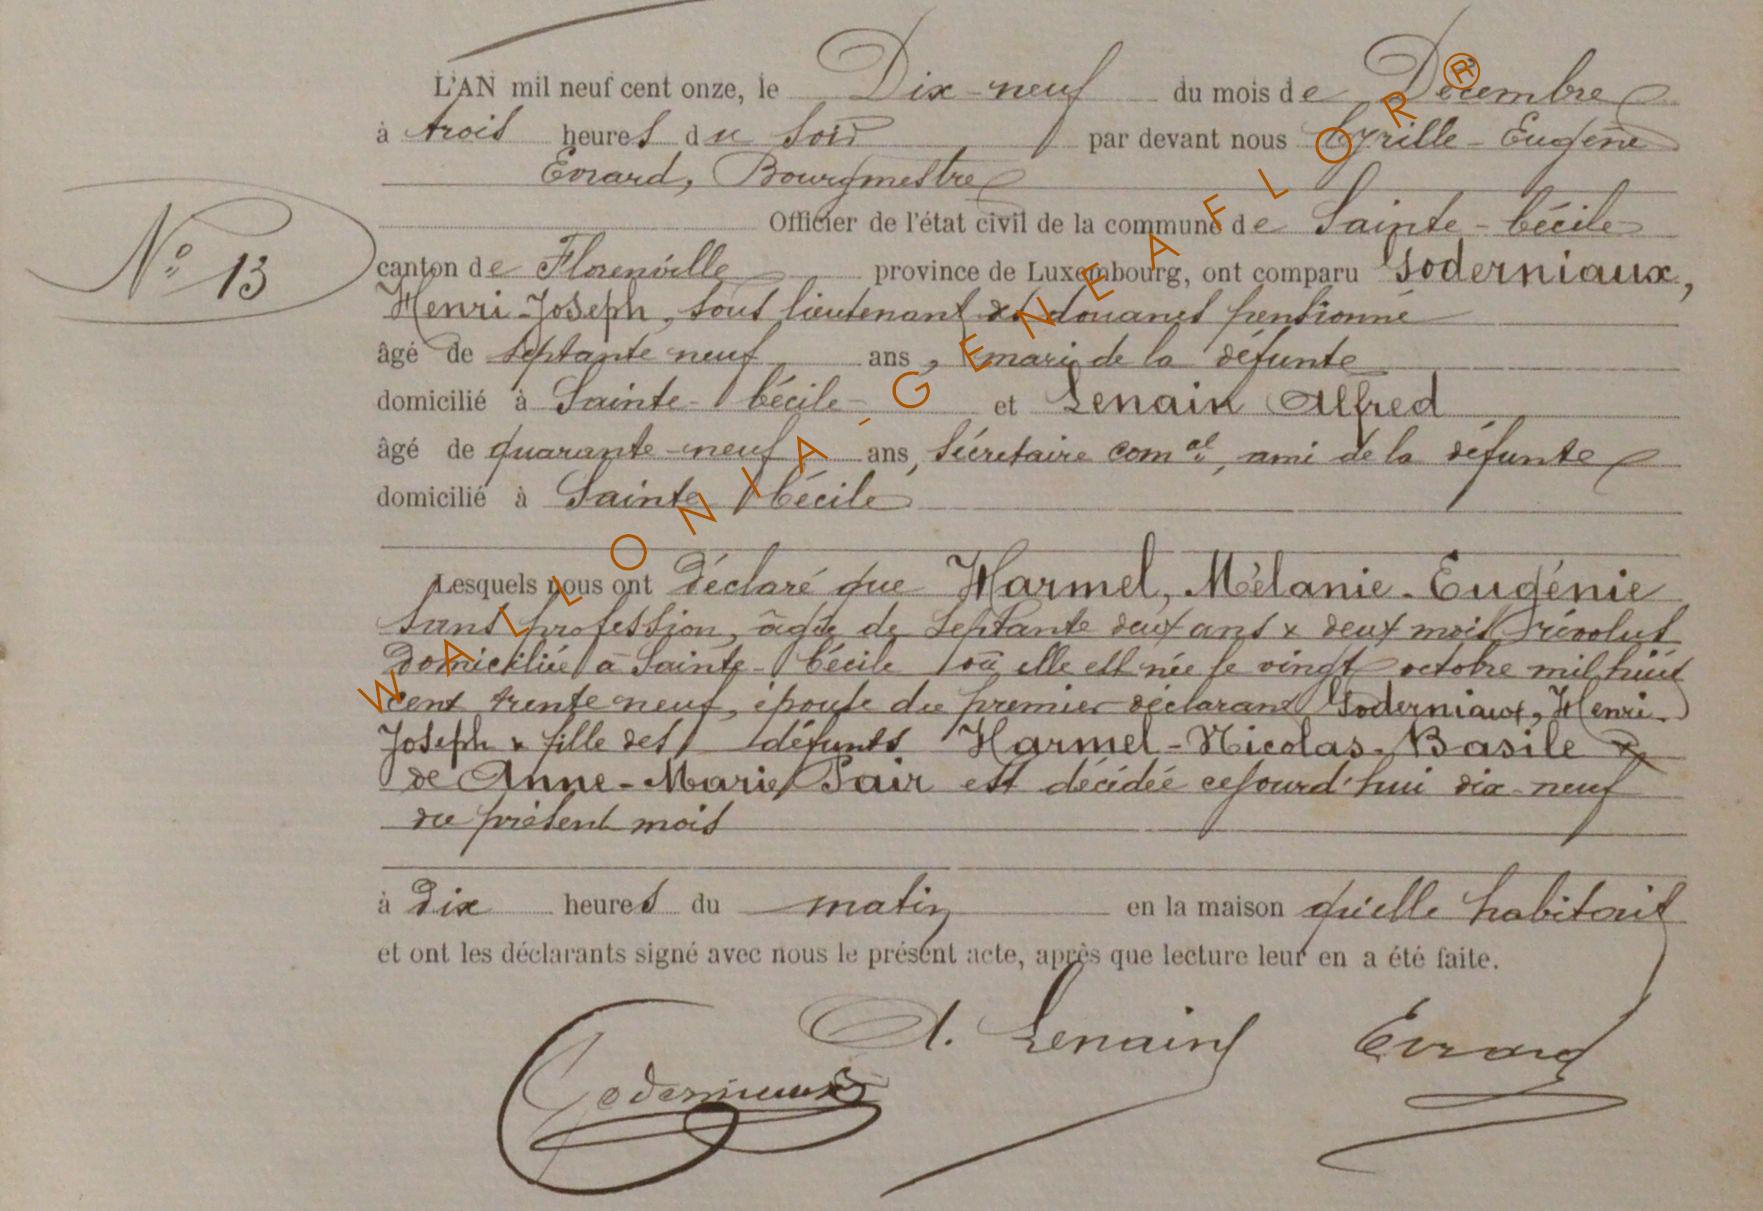 L'AN mil neuf cent onze, le Dix-neuf du mois de Décembre
à trois heures du soir par devant nous Cyrille-Eugène
Evrard, Bourgmestre
Officier de l'état civil de la commune de Sainte-Cécile
N° 13
canton de Florenville province de Luxembourg, ont comparu Goderniaux,
Henri-Joseph, sous lieutenant des douanes pensionné
âgé de septante neuf ans, mari de la défunte
domicilié à Sainte-Cécile et Lenain Alfred
âgé de quarante-neuf ans, sécretaire comal, ami de la défunte
domicilié à Sainte Cécile
Lesquels nous ont déclaré que Harmel, Mélanie-Eugénie
sans profession, âgée de septante deux ans & deux mois révolus
domiciliée à Sainte-Cécile où elle est née le vingt octobre mil huit
cent trente neuf, épouse du premier déclarant Goderniaux, Henri-
Joseph & fille des défunts Harmel-Nicolas-Basile &
de Anne-Marie Pair est décédée cejourd'hui dix-neuf
du présent mois
à dix heures du matin en la maison qu'elle habitait
et ont les déclarants signé avec nous le présent acte, après que lecture leur en a été faite.
A. Lenain Evrard
Goderniaux
WALLONIA-GENEAFLOR®